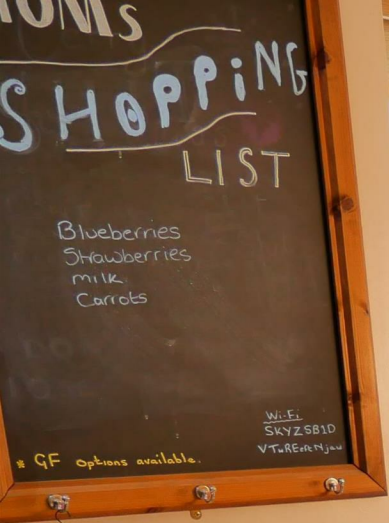 MOMs
SHOPPiNG
LIST
Blueberries
Strawberries
milk
Carrots
Wi-Fi
SKYZSB1D
* GF options available.